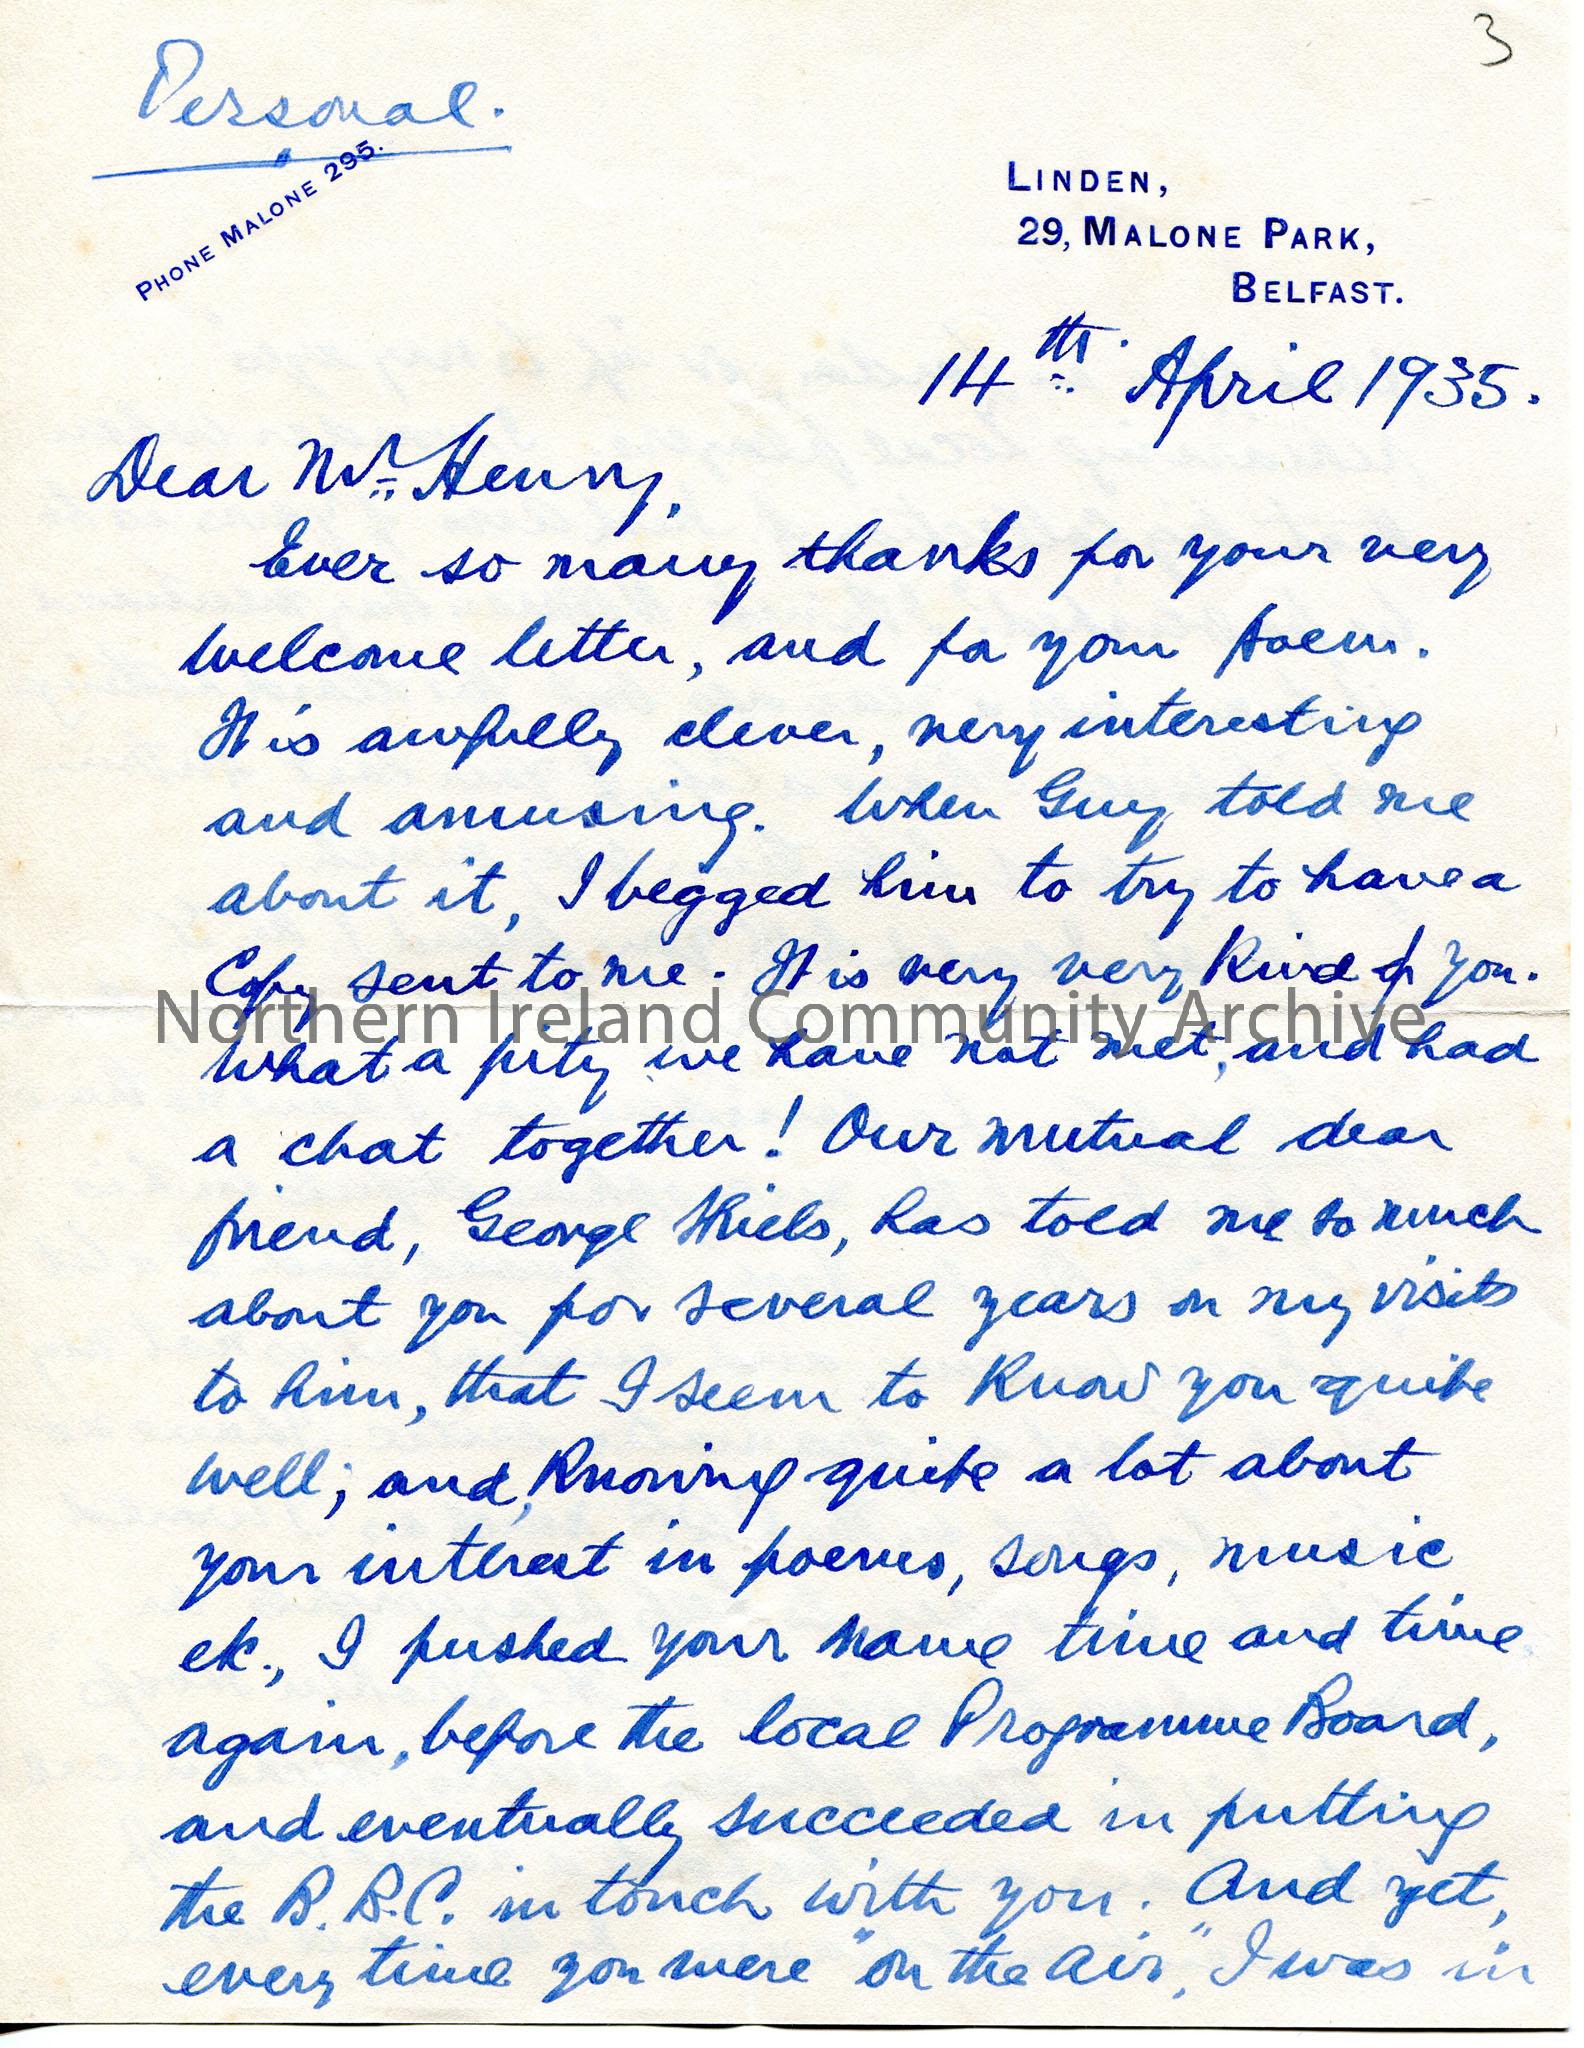 3
Personal.
PHONE MALONE 295.
LINDEN,
29, MALONE PARK,
BELFAST.
14th. April 1935.
Dear Mr. Henry,
Ever so many thanks for your very
welcome letter, and for your poem.
It is awfully clever, very interesting
and amusing. When Guy told me
about it, I begged him to try to have a
Copy sent to me. It is very very kind of you.
Northern Ireland Community Archive
What a pity we have not met, and had
a chat together! Our mutual dear
friend, George Shiels, has told me so much
about you for several years on my visits
to him, that I seem to know you quite
well; and, knowing quite a lot about
your interest in poems, songs, music
etc., I pushed your name time and time
again, before the local Programme Board,
and eventually succeeded in putting
the B.B.C. in touch with you. And yet,
every time you were "on the air", I was in